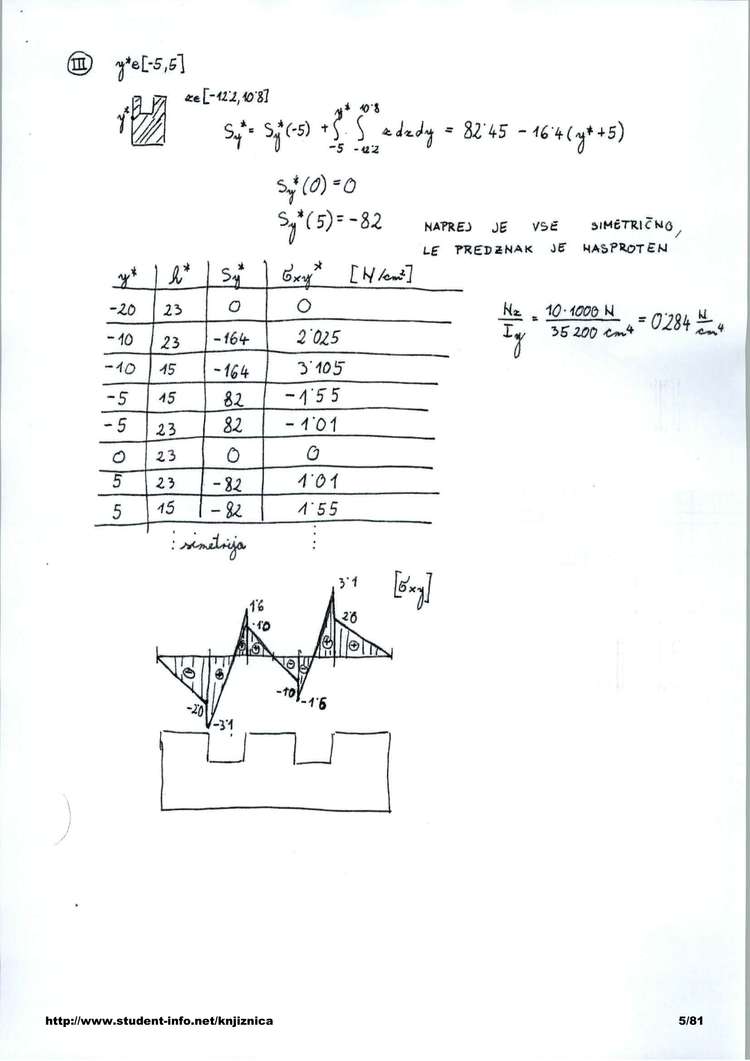 III y*∈[-5,5]
y* z∈[-12'2,10'8]
Sy* = Sy*(-5) + ∫_{-5}^{y*} ∫_{-12'2}^{10'8} z dz dy = 82'45 - 16'4(y*+5)
Sy*(0) = 0
Sy*(5) = -82
NAPREJ JE VSE SIMETRIČNO,
LE PREDZNAK JE NASPROTEN
y* h* Sy* σxy* [N/cm²]
-20 23 0 0
-10 23 -164 2'025
-10 15 -164 3'105
-5 15 82 -1'55
-5 23 82 -1'01
0 23 0 0
5 23 -82 1'01
5 15 -82 1'55
⋮ simetrija ⋮
Nz/Iy = 10·1000 N / 35 200 cm⁴ = 0'284 N/cm⁴
[σxy]
3'1
1'6
1'0
2'0
⊖ ⊕ ⊕ ⊕ ⊖ ⊖ ⊕ ⊕
-1'0
-1'6
-2'0
-3'1
http://www.student-info.net/knjiznica 5/81